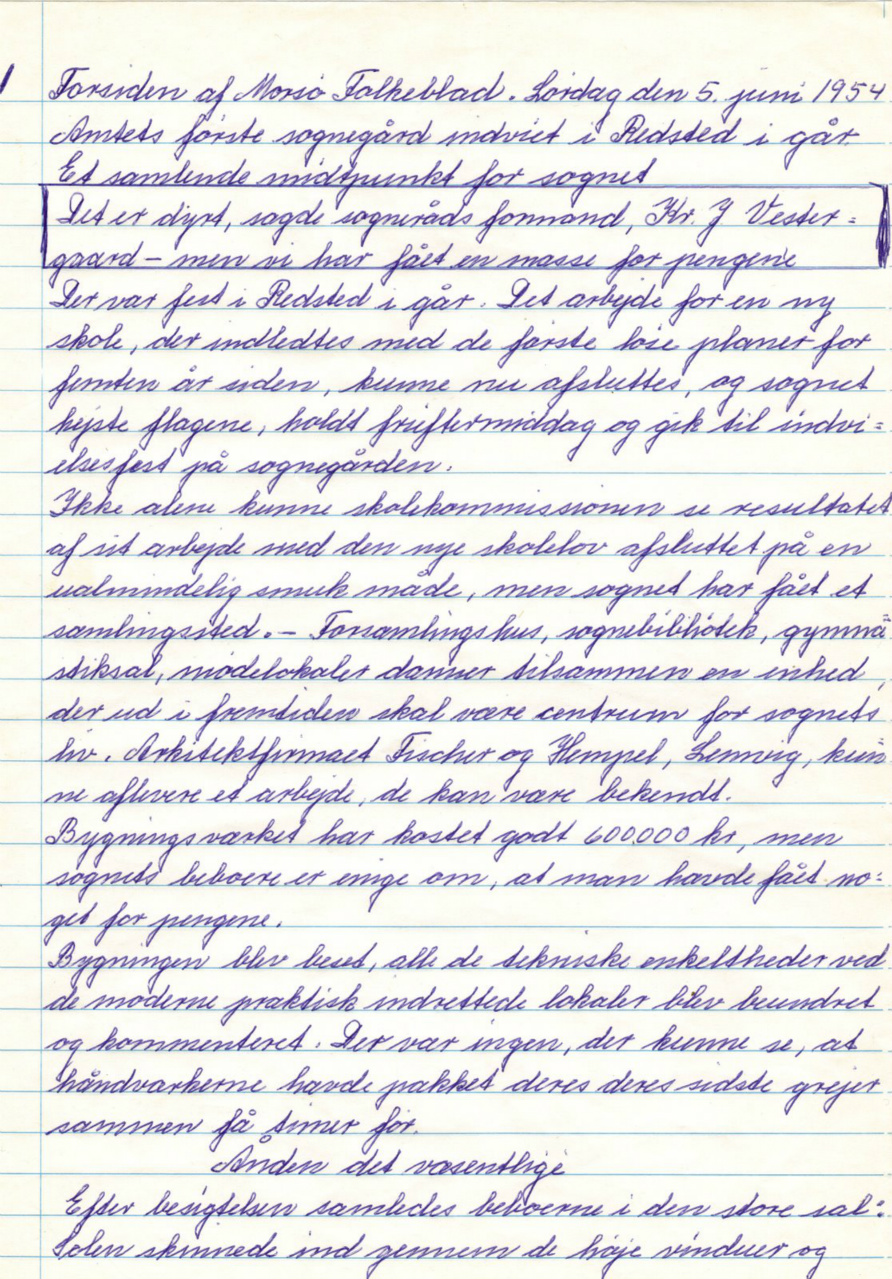 Forsiden af Morsø Folkeblad. Lørdag den 5. juni 1954
Amtets første sognegård indviet i Redsted i går.
Et samlende midtpunkt for sognet
Det er dyrt, sagde sogneråds formand, Kr. J Vester=
gaard – men vi har fået en masse for pengene
Der var fest i Redsted i går. Det arbejde for en ny
skole, der indledtes med de første løse planer for
femten år siden, kunne nu afsluttes, og sognet
hejste flagene, holdt frieftermiddag og gik til indvi=
elsesfest på sognegården.
Ikke alene kunne skolekommissionen se resultatet
af sit arbejde med den nye skolelov afsluttet på en
ualmindelig smuk måde, men sognet har fået et
samlingssted. – Forsamlingshus, sognebibliotek, gymna=
stiksal, mødelokaler danner tilsammen en enhed,
der ud i fremtiden skal være centrum for sognets
liv. Arkitektfirmaet Fischer og Hempel, Lemvig, kun=
ne aflevere et arbejde, de kan være bekendt.
Bygningsværket har kostet godt 600.000 kr, men
sognets beboere er enige om, at man havde fået no=
get for pengene.
Bygningen blev beset, alle de tekniske enkeltheder ved
de moderne praktisk indrettede lokaler blev beundret
og kommenteret. Der var ingen, der kunne se, at
håndværkerne havde pakket deres deres sidste grejer
sammen få timer før.
Ånden det væsentlige
Efter besigtelsen samledes beboerne i den store sal.
Solen skinnede ind gennem de høje vinduer og